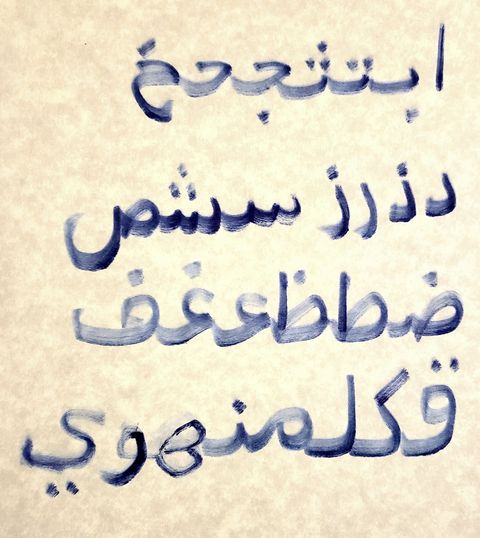 ابتثجحخ
دذرز سشص
ضطظعغف
قكلمنهوي